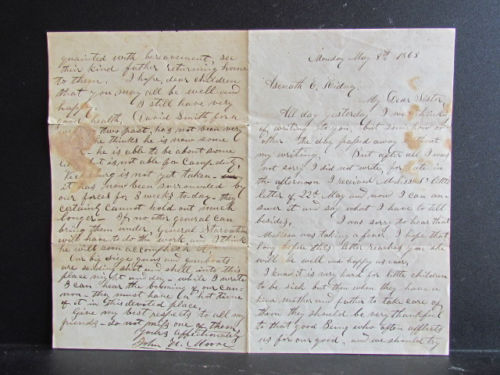 Monday May 8th 1863
Asenath E. Witney
My Dear Sister,
All day yesterday I was
of writing to you, but some how or
other the day passed away without
my writing. But after all I was
not sorry I did not write, for late in
the afternoon I received Melissa's little
letter of 22d May and now I can an-
swer it and say what I have to tell
besides, I was sorry to hear that
Melissa was taking a fever. I hope that
long before this letter reaches you she
will be well and happy as ever.
I know it is very hard for little children
to be sick but then when they have a
kind mother and father to take care of
them they should be very thankful
to that Good Being who often afflicts
us for our good, and we should try
quainted with bereavement, see
their kind father returning home
to them. I hope, dear children
that you may all be well and
happy.
I still have very
good health, David Smith for a
days past, has not been very
He thinks he is now some
he is able to be about some
but is not able for Camp duty.
Vicksburg is not yet taken
it has now been surrounded by
our forces for 3 weeks today. they
certainly cannot hold out much
longer. If no other general can
bring them under, General Starvation
will have to do the work and I think
he will soon accomplish it.
Our big siege guns and gunboats
are sending shot and shell into this
place night and day. while I write
I can hear the booming of our can-
non. they must have a hot time
of it in this devoted place.
Give my best respects to all my
friends. do not miss one of them
Yours affectionately
John H. Moore